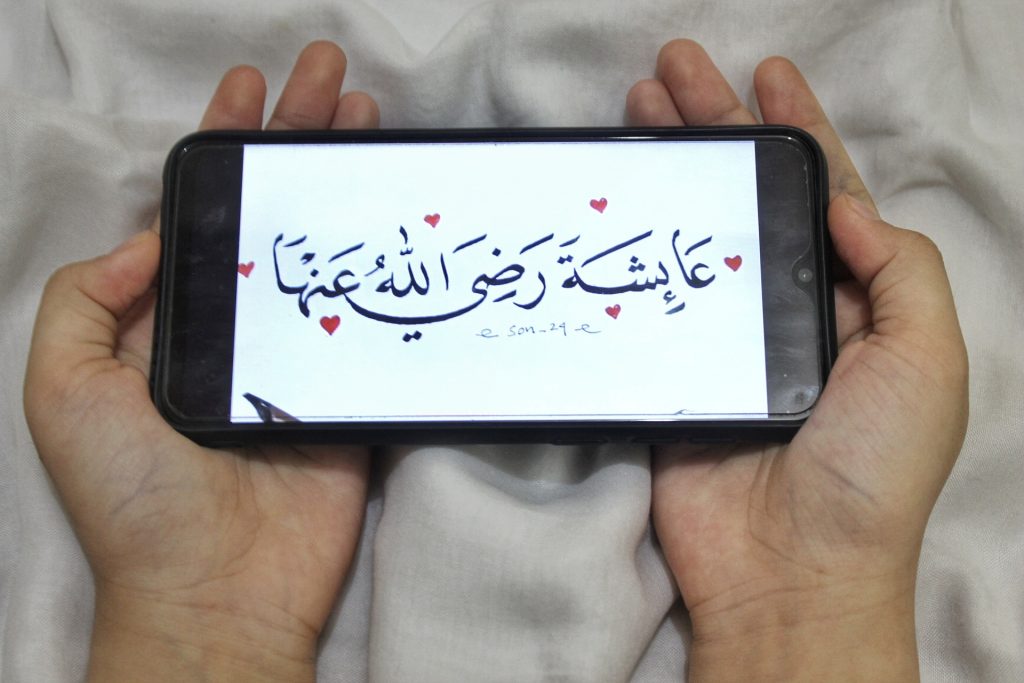 عَاإِشَةَ رَضِيَ اللّٰهُ عَنْهَا
e son_24 e